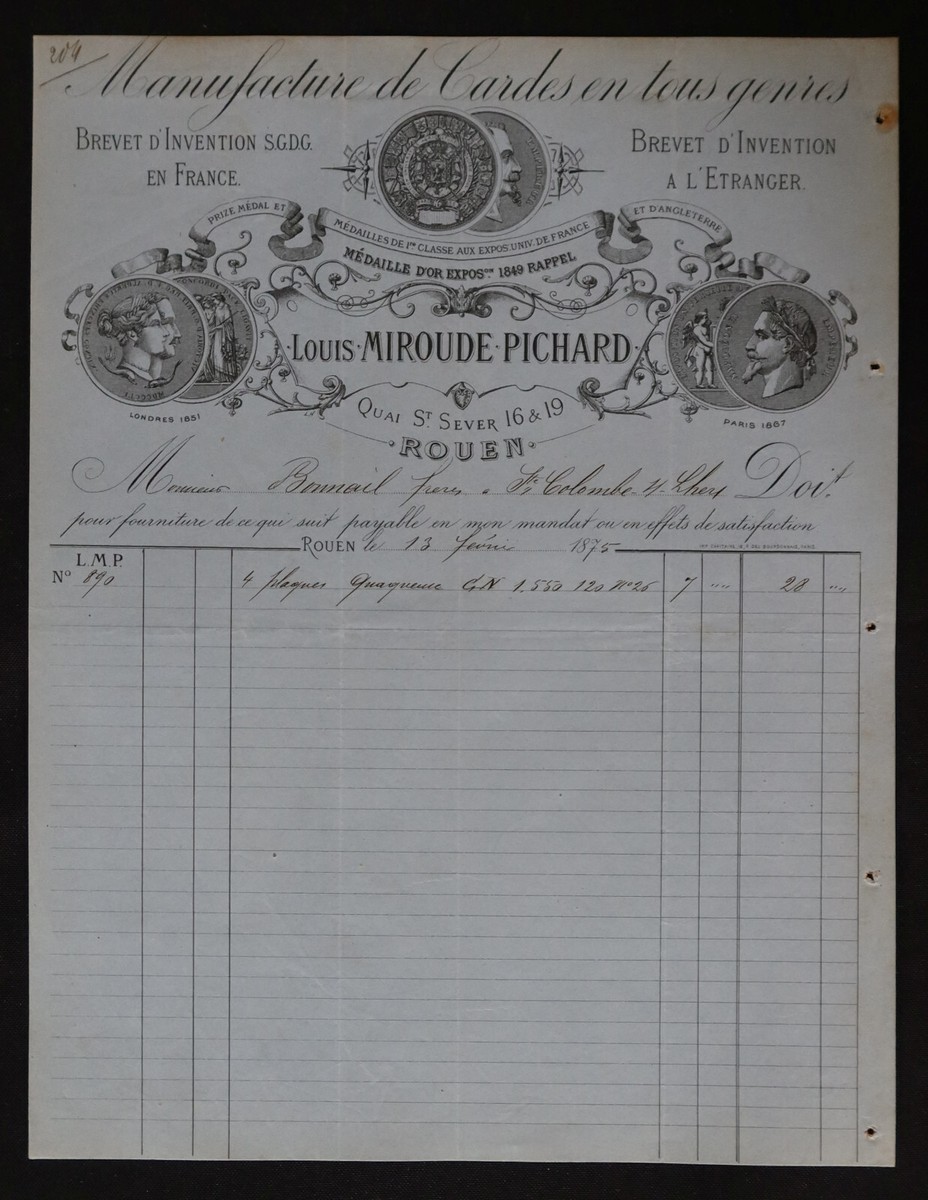 204
Manufacture de Cardes en tous genres
BREVET D'INVENTION S.G.D.G.
EN FRANCE.
BREVET D'INVENTION
A L'ETRANGER.
PRIZE MÉDAL ET
MÉDAILLES DE 1RE CLASSE AUX EXPOS. UNIV. DE FRANCE
ET D'ANGLETERRE
MÉDAILLE D'OR EXPOSON 1849 RAPPEL
LOUIS · MIROUDE · PICHARD
LONDRES 1851
PARIS 1867
QUAI ST SEVER 16 & 19
ROUEN
Monsieur Bonnail frères a Ste Colombe s/ Lhers Doit
pour fourniture de ce qui suit payable en mon mandat ou en effets de satisfaction
ROUEN le 13 février 1875
L.M.P.
No 890 4 plaques 1.550 120 No 26 7 " " 28 " "